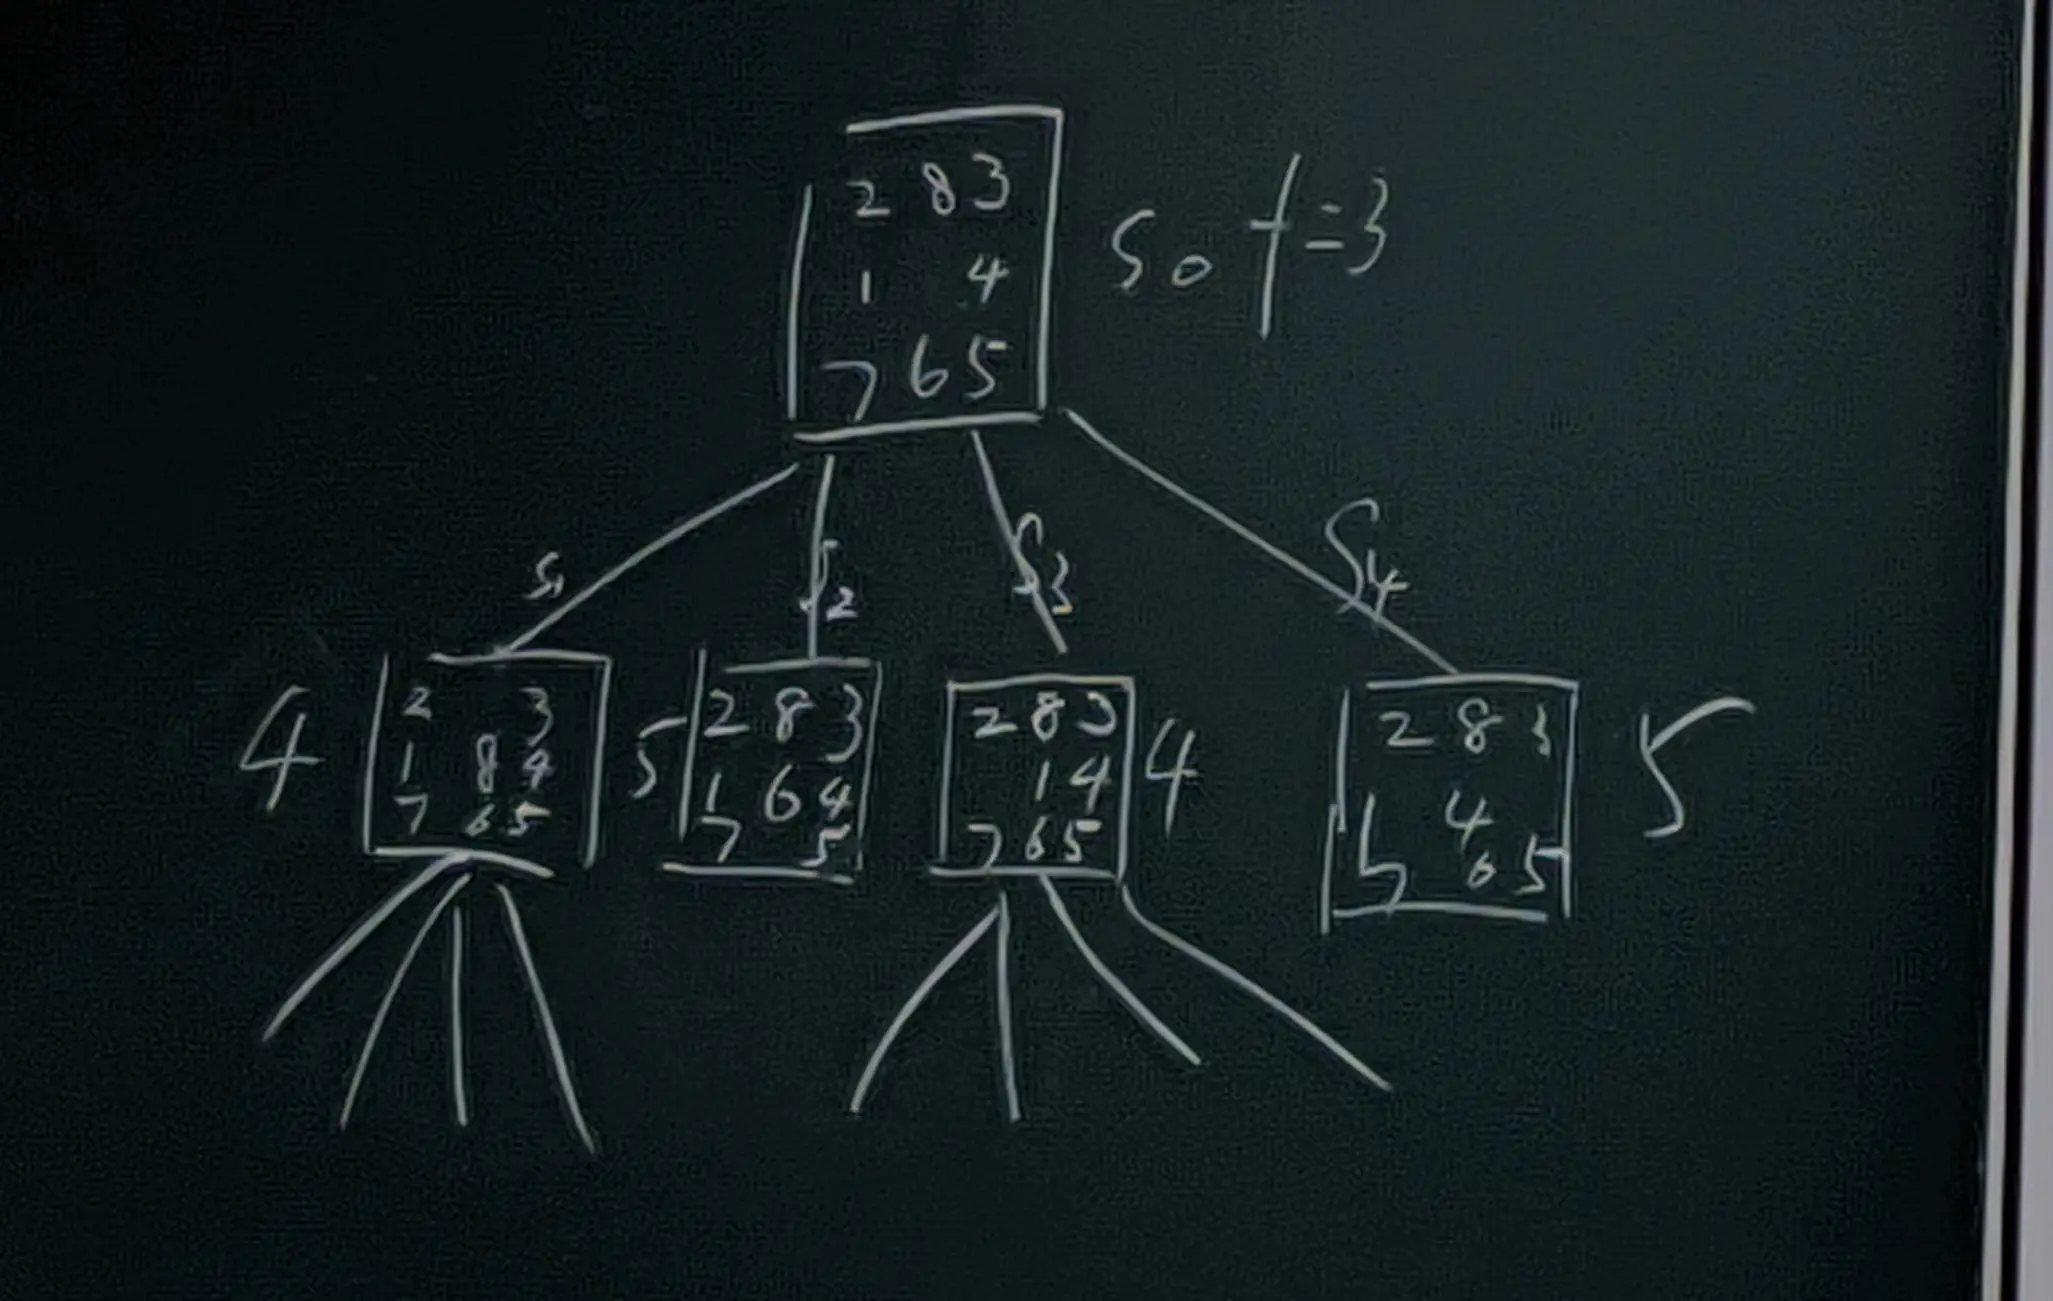 2 8 3
1 4
7 6 5
S0 f=3
S1
S2
S3
S4
4
2 3
1 8 4
7 6 5
5
2 8 3
1 6 4
7 5
2 8 3
1 4
7 6 5
4
2 8 3
4
6 5
5